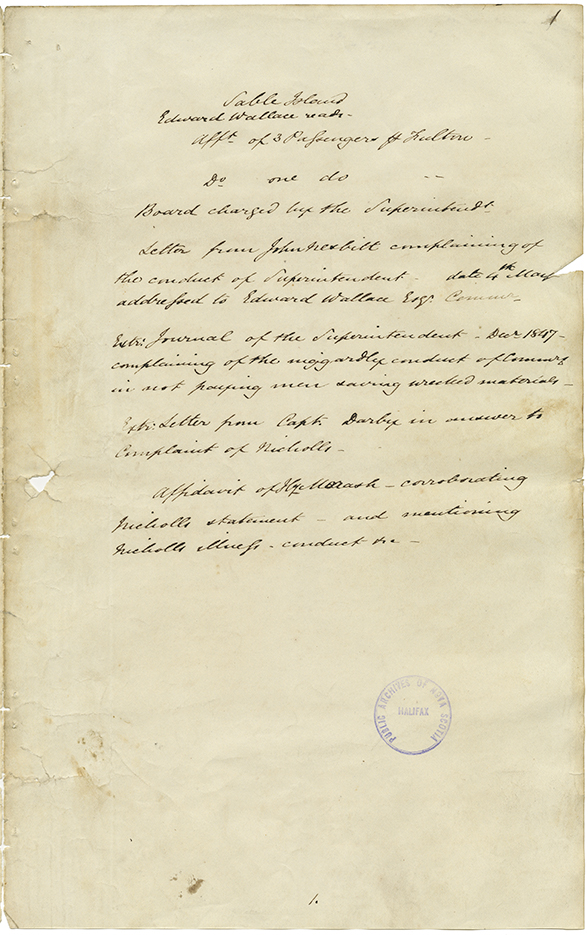 1
Sable Island
Edward Wallace reads -
Affts of 3 Passengers Fulton -
Do one do --
Board charged by the Superintendt
Letter from John Nesbitt complaining of
the conduct of Superintendent - date 4th May
addressed to Edward Wallace Esqr. Commr
Extr: Journal of the Superintendent - Decr 1847 -
complaining of the niggardly conduct of Commrs
in not paying men saving wrecked materials -
Extr: Letter from Capt. Darby in answer to
Complaint of Nicholls -
Affidavit of Hy - corroborating
Nicholls statement - and mentioning
Nicholls illness - conduct &c -
PUBLIC ARCHIVES OF NOVA SCOTIA
HALIFAX
1.